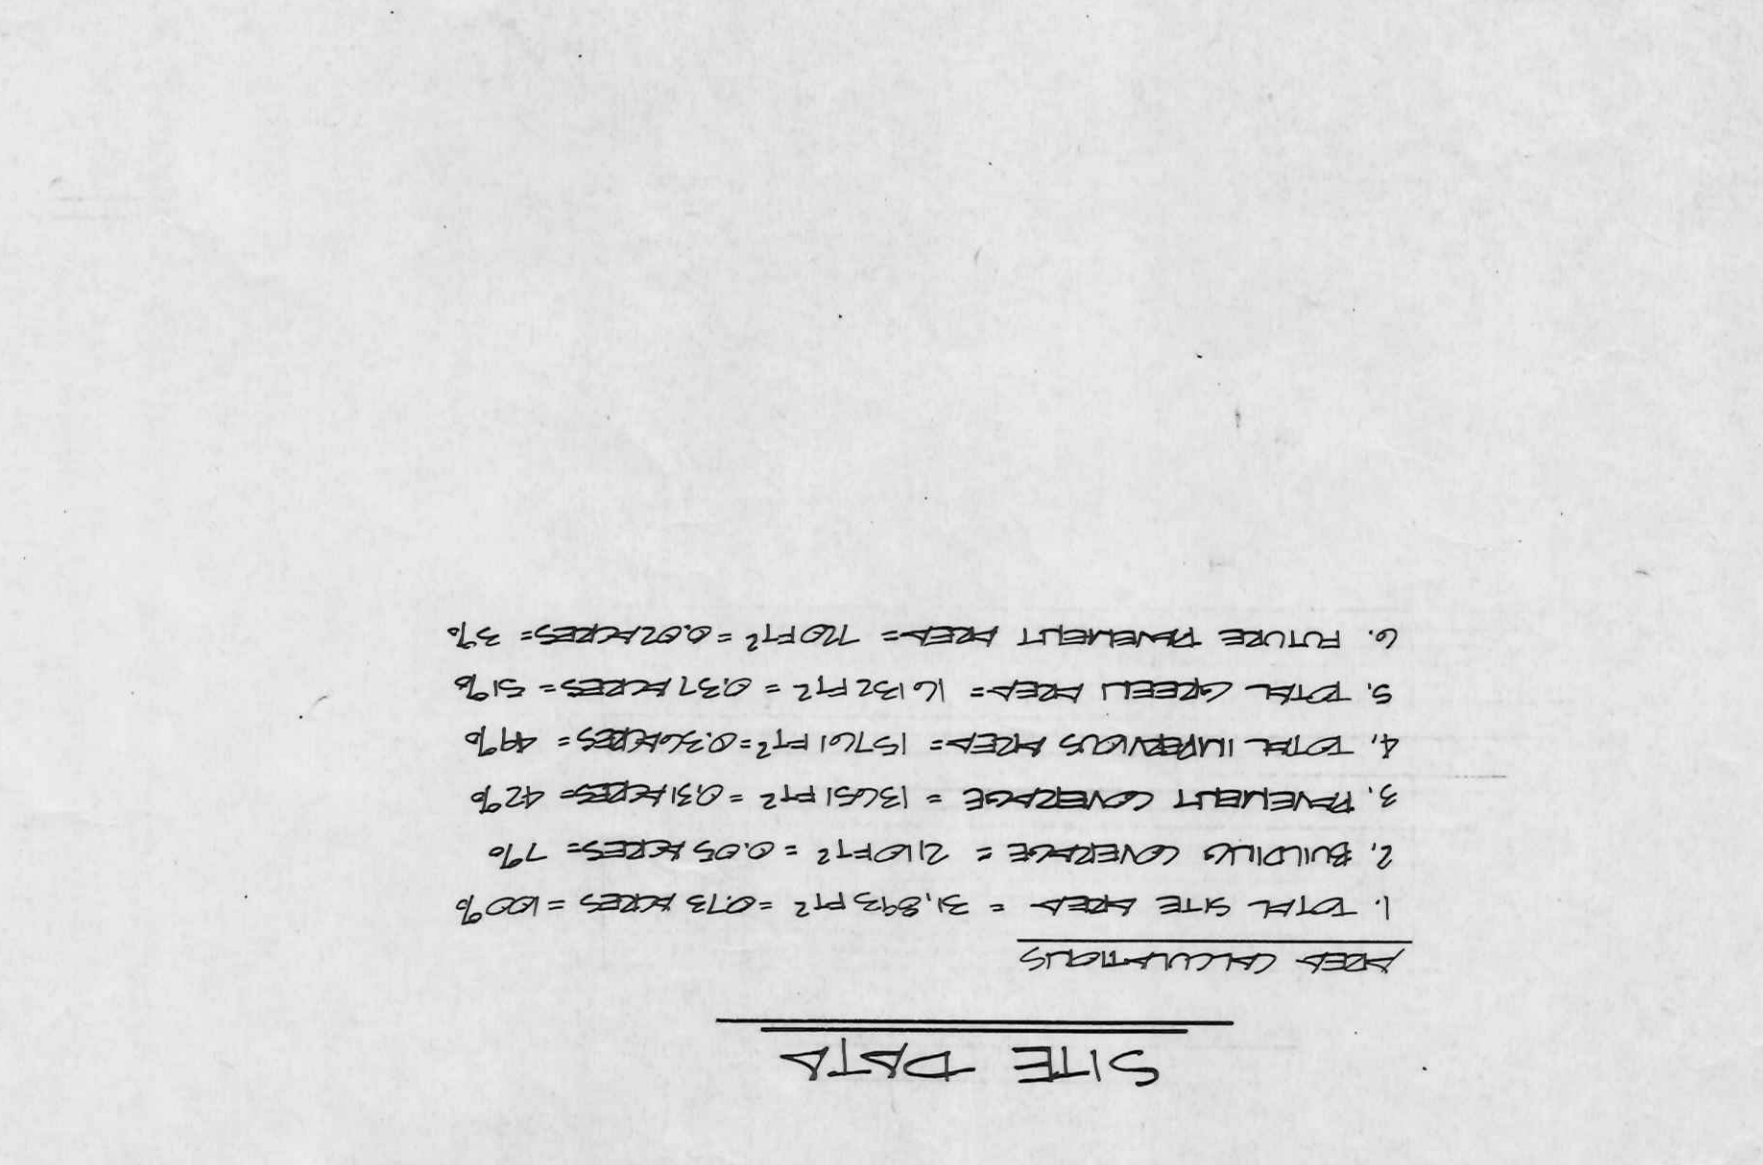 SITE DATA
AREA CALCULATIONS
1. TOTAL SITE AREA = 31,893 FT² = 0.73 ACRES = 100%
2. BUILDING COVERAGE = 2110 FT² = 0.05 ACRES = 7%
3. PAVEMENT COVERAGE = 13651 FT² = 0.31 ACRES = 42%
4. TOTAL IMPERVIOUS AREA = 15761 FT² = 0.36 ACRES = 49%
5. TOTAL GREEN AREA = 16132 FT² = 0.37 ACRES = 51%
6. FUTURE PAVEMENT AREA = 720 FT² = 0.02 ACRES = 3%